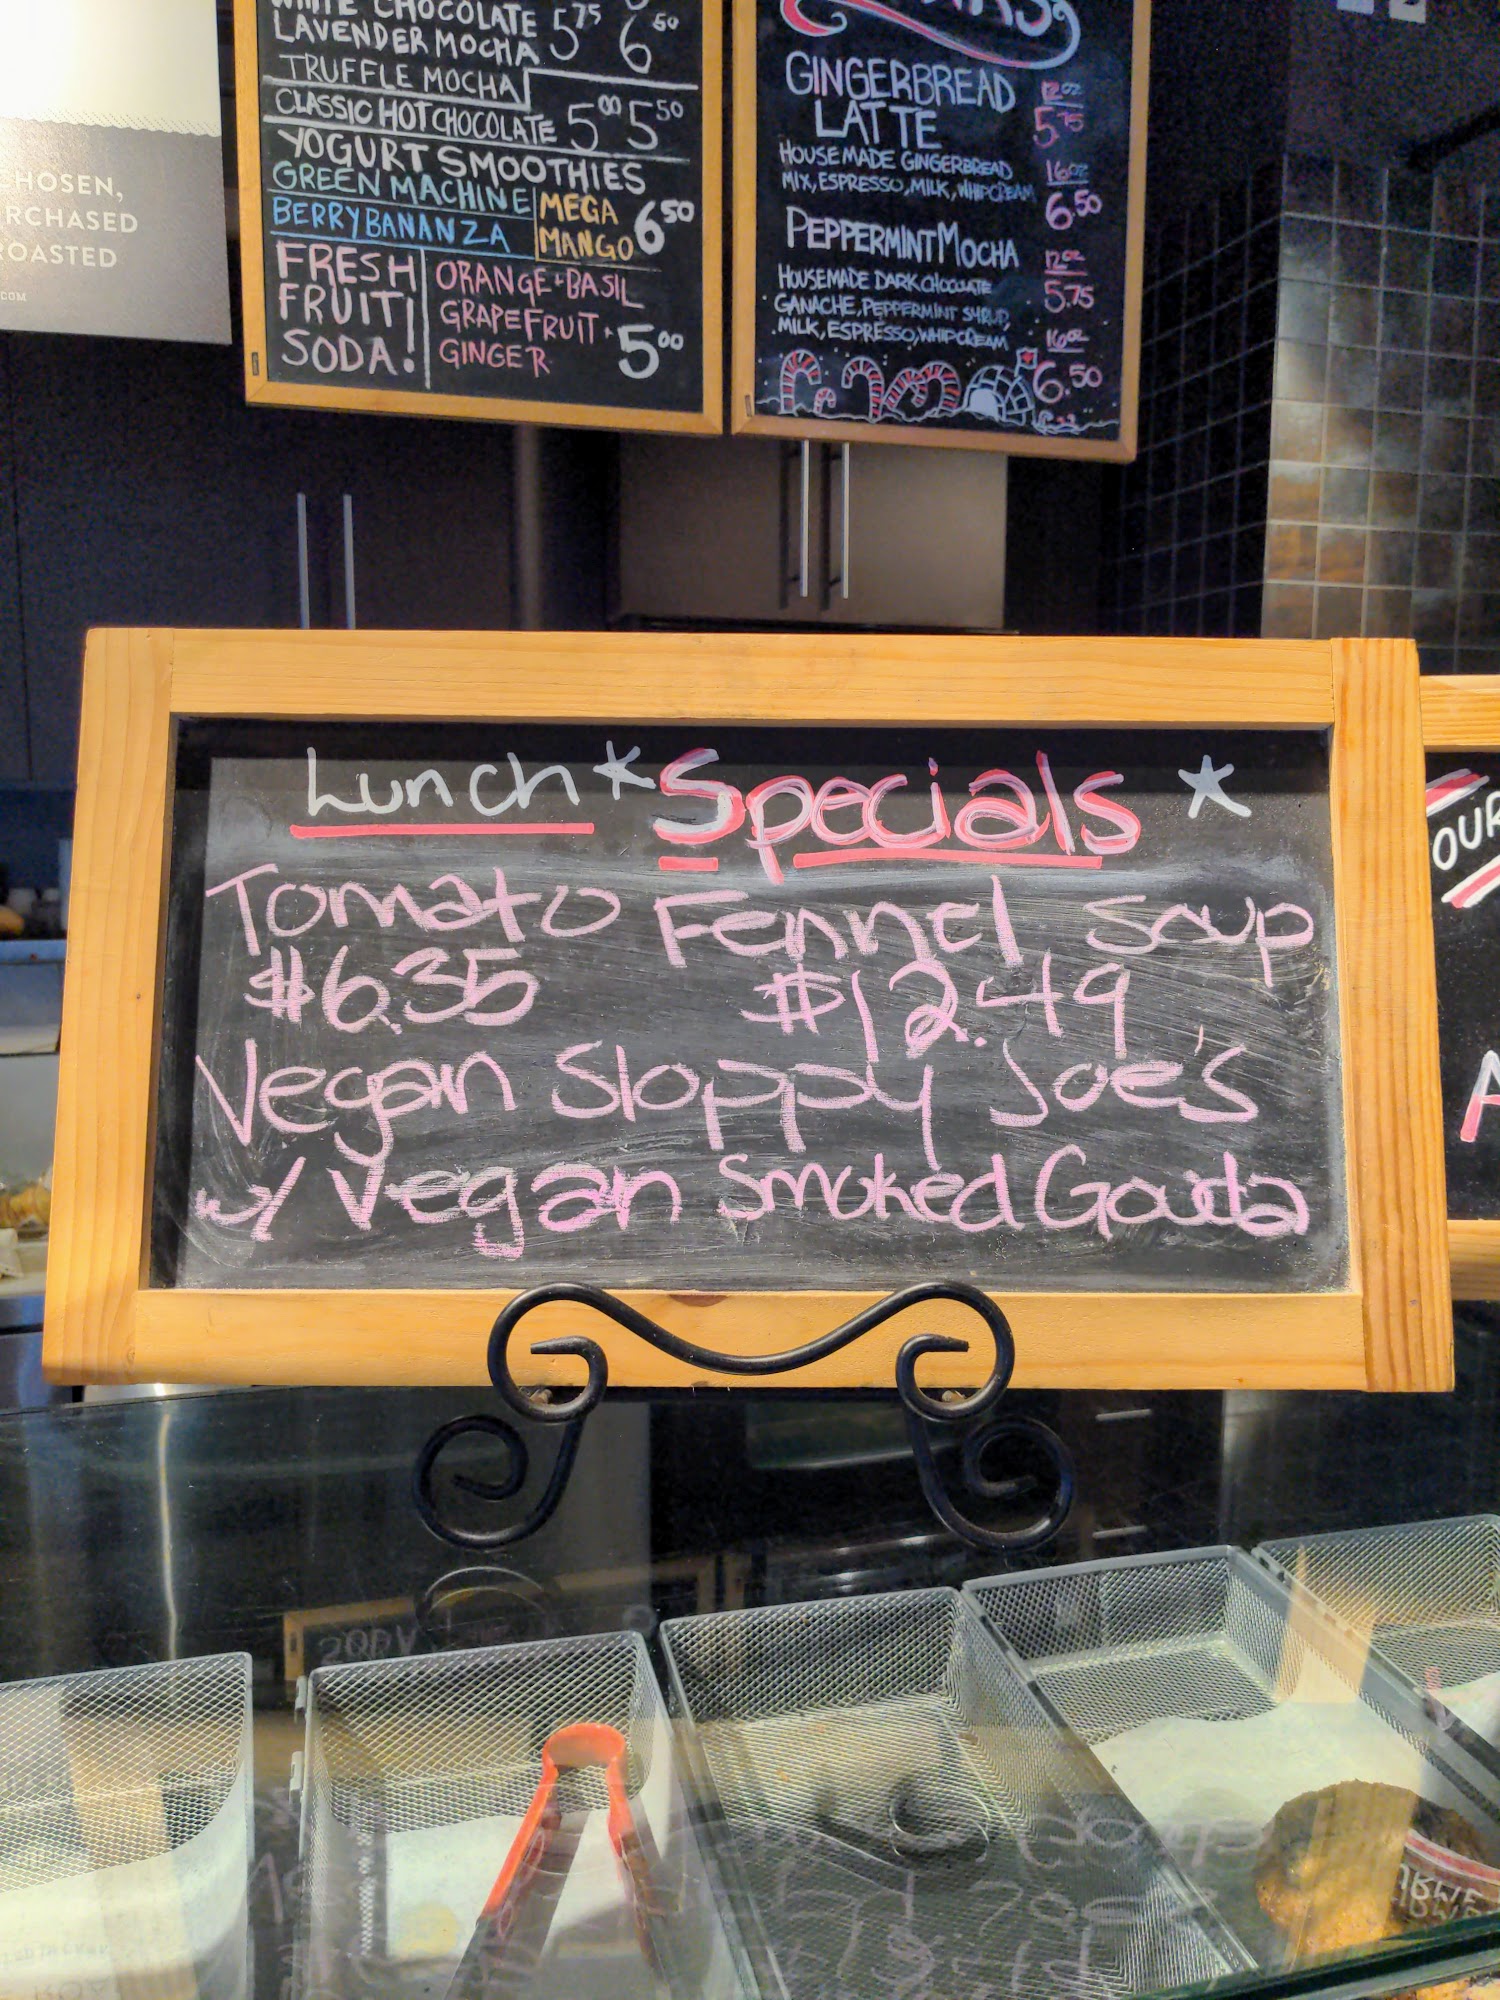 HOSEN,
RCHASED
ROASTED
.COM
WHITE CHOCOLATE
LAVENDER MOCHA 5⁷⁵ 6⁵⁰
TRUFFLE MOCHA
CLASSIC HOT CHOCOLATE 5⁰⁰ 5⁵⁰
YOGURT SMOOTHIES
GREEN MACHINE
BERRY BANANZA
MEGA
MANGO 6⁵⁰
FRESH
FRUIT!
SODA!
ORANGE + BASIL
GRAPEFRUIT +
GINGER 5⁰⁰
GINGERBREAD
LATTE
HOUSEMADE GINGERBREAD
MIX, ESPRESSO, MILK, WHIPCREAM
12oz
5.75
16oz
6.50
PEPPERMINT MOCHA
HOUSEMADE DARK CHOCOLATE
GANACHE, PEPPERMINT SYRUP,
MILK, ESPRESSO, WHIPCREAM
12oz
5.75
16oz
6.50
Lunch *Specials *
Tomato Fennel Soup
$6.35 $12.49
Vegan Sloppy Joe's
w/ Vegan Smoked Gouda
OUR
A